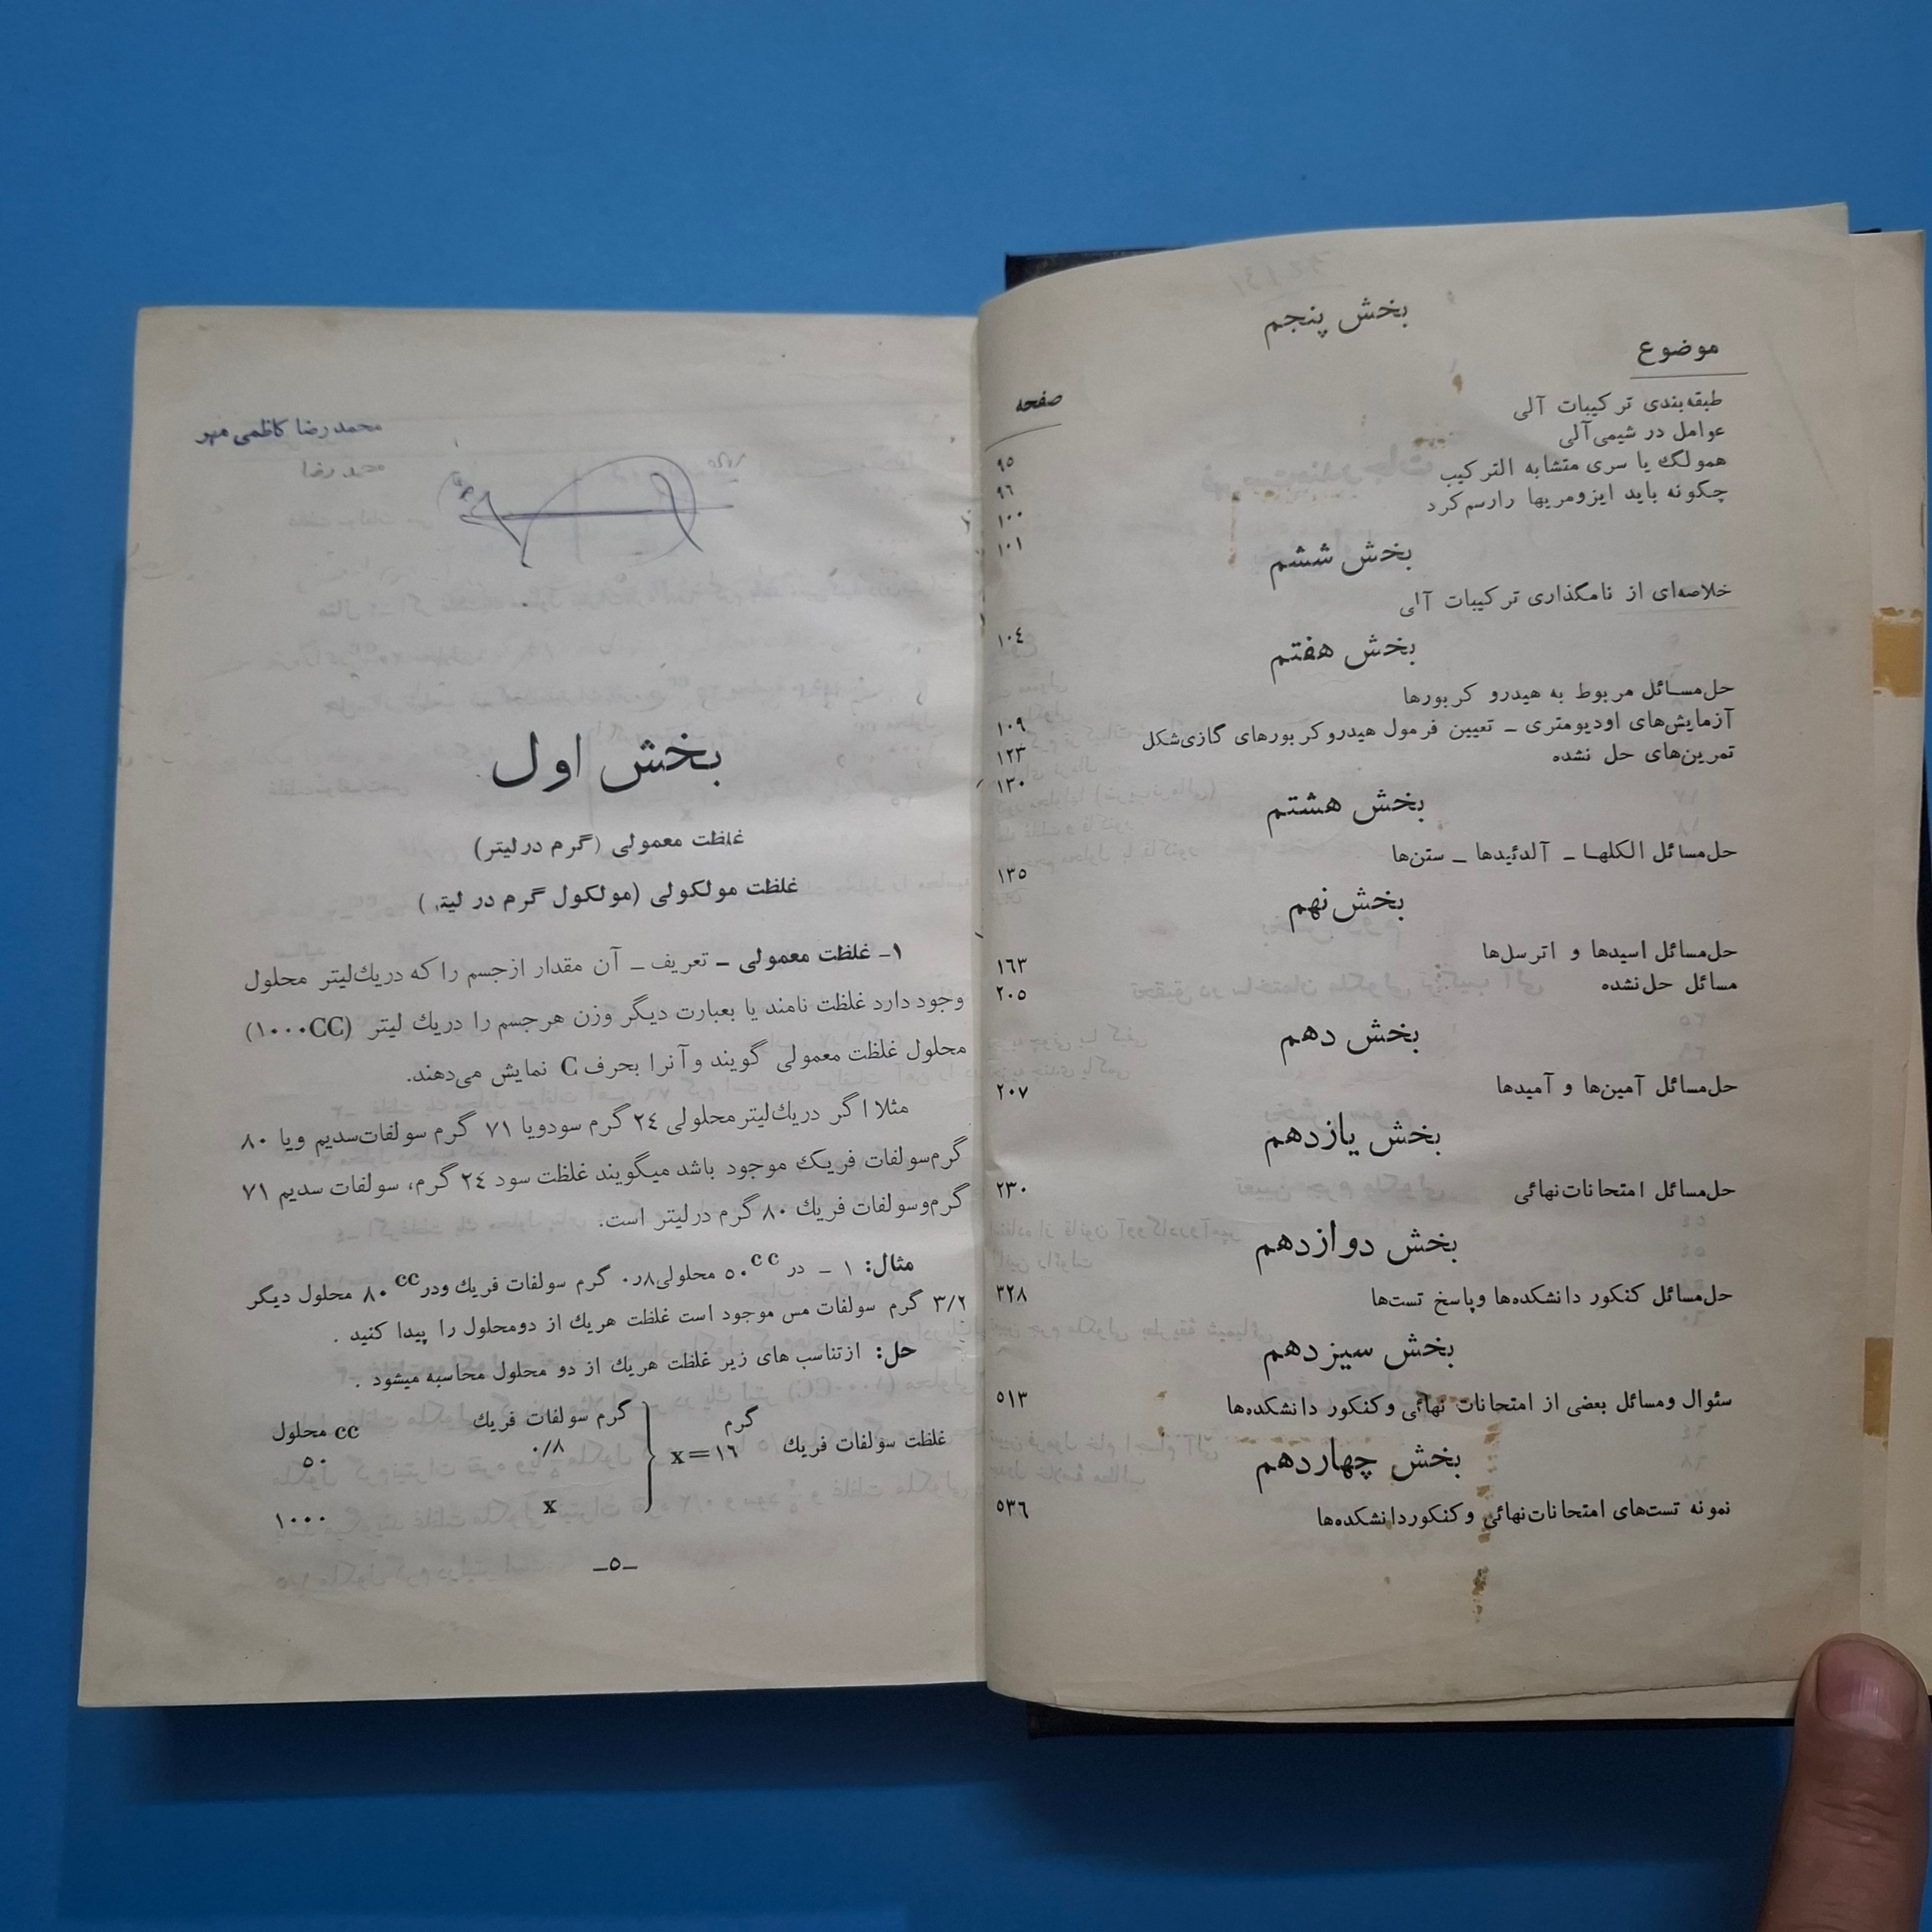 بخش پنجم
موضوع
صفحه
طبقه‌بندی ترکیبات آلی ۹۵
عوامل در شیمی‌آلی ۹۶
همولگ یا سری متشابه الترکیب ۱۰۰
چگونه باید ایزومریها رارسم‌کرد ۱۰۱
بخش ششم
خلاصه‌ای از نامگذاری ترکیبات آلی ۱۰٤
بخش هفتم
حل‌مسائل مربوط به هیدرو کربورها ۱۰۹
آزمایش‌های اودیومتری ـ تعیین فرمول هیدروکربورهای گازی‌شکل ۱۲۳
تمرین‌های حل نشده ۱۳۰
بخش هشتم
حل‌مسائل الکلها ـ آلدئیدها ـ ستن‌ها ۱۳۵
بخش نهم
حل‌مسائل اسیدها و اترسل‌ها ۱٦۳
مسائل حل‌نشده ۲۰۵
بخش دهم
حل‌مسائل آمین‌ها و آمیدها ۲۰۷
بخش یازدهم
حل‌مسائل امتحانات‌نهائی ۲۳۰
بخش دوازدهم
حل‌مسائل کنکور دانشکده‌ها وپاسخ تست‌ها ۳۲۸
بخش سیزدهم
سئوال ومسائل بعضی از امتحانات نهائی وکنکور دانشکده‌ها ۵۱۳
بخش چهاردهم
نمونه تست‌های امتحانات‌نهائی وکنکوردانشکده‌ها ۵۳٦
محمدرضا کاظمی مهر
محمدرضا
بخش اول
غلظت معمولی (گرم درلیتر)
غلظت مولکولی (مولکول گرم در لیتر)
۱ـ غلظت معمولی ـ تعریف ـ آن مقدار ازجسم را که دریك‌لیتر محلول
وجود دارد غلظت نامند یا بعبارت دیگر وزن هرجسم را دریك لیتر (۱۰۰۰CC)
محلول غلظت معمولی گویند وآنرا بحرف C نمایش می‌دهند.
مثلا اگر دریك‌لیترمحلولی ۲٤ گرم سودویا ۷۱ گرم سولفات‌سدیم ویا ۸۰
گرم‌سولفات فریک موجود باشد میگویند غلظت سود ۲٤ گرم، سولفات سدیم ۷۱
گرم‌وسولفات فریك ۸۰ گرم درلیتر است.
مثال: ۱ ـ در ۵۰cc محلولی۰٫۸ گرم سولفات فریك ودر۸۰cc محلول دیگر
۳/۲ گرم سولفات مس موجود است غلظت هریك از دومحلول را پیدا کنید .
حل: ازتناسب های زیر غلظت هریك از دو محلول محاسبه میشود .
cc محلول گرم سولفات فریك گرم
۵۰ ۰/۸ غلظت سولفات فریك x=۱٦
۱۰۰۰ x
ـ۵ـ